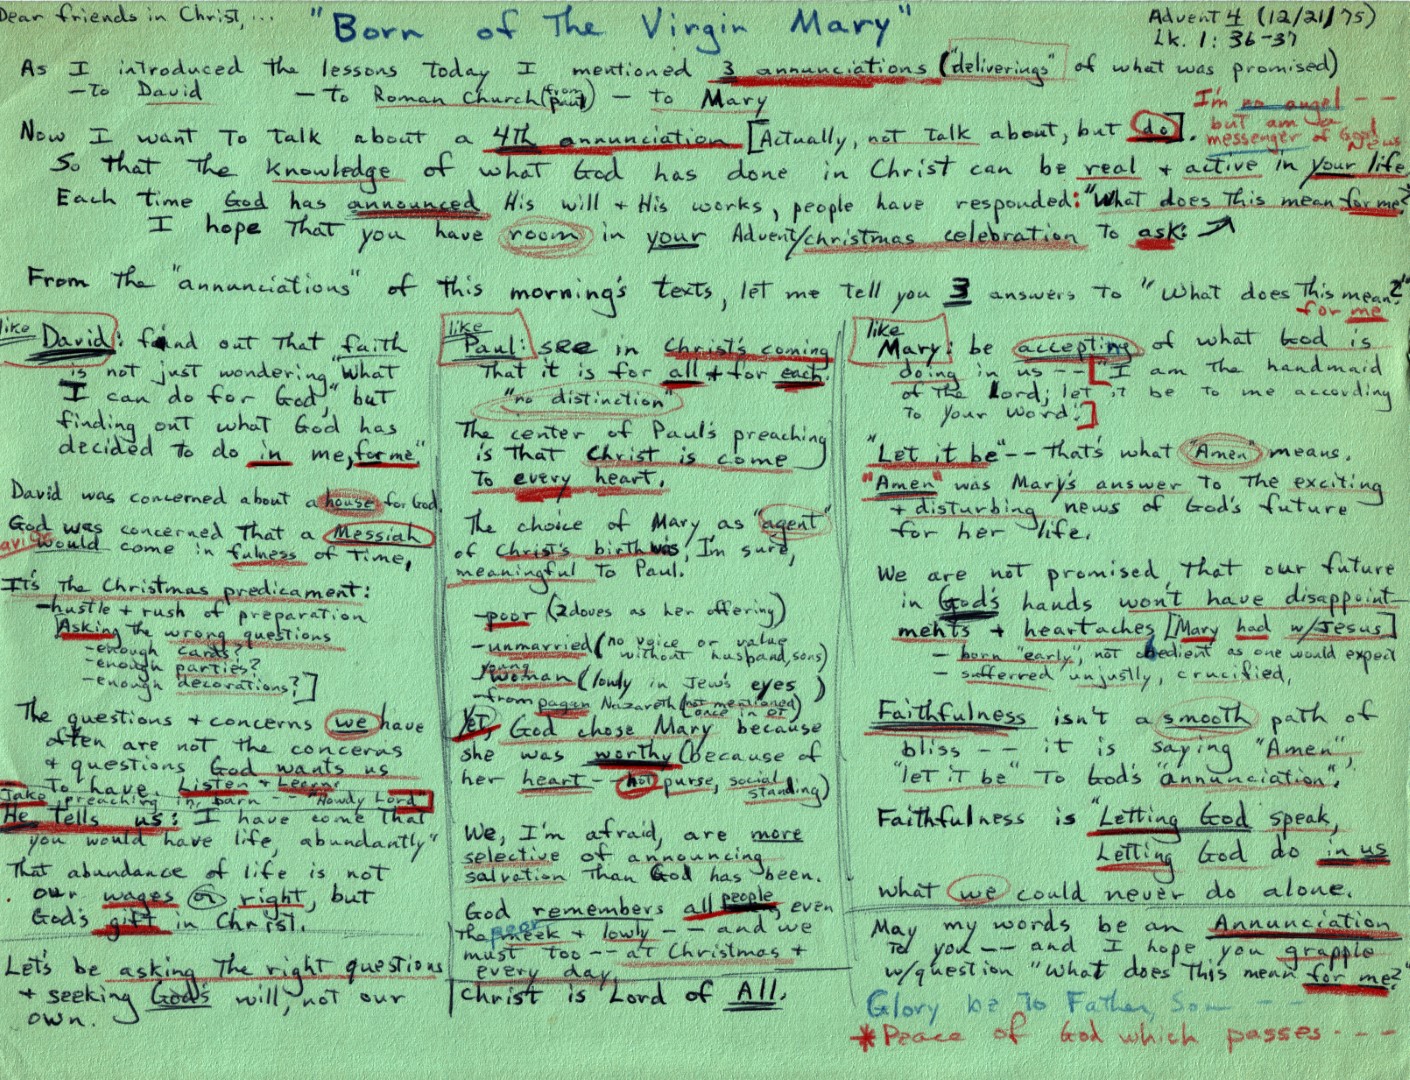 Dear friends in Christ,...
"Born of The Virgin Mary"
Advent 4 (12/21/75)
Lk. 1: 36-37
As I introduced the lessons today I mentioned 3 annunciations ("deliverings" of what was promised)
- To David - to Roman Church (from Paul) - to Mary
I'm no angel --
but am a
messenger of Good News
Now I want to talk about a 4th annunciation [Actually, not talk about, but do].
So that the knowledge of what God has done in Christ can be real + active in your life
Each time God has announced His will + His works, people have responded: "What does This mean for me?"
I hope that you have room in your Advent/christmas celebration to ask:
From the "annunciations" of this morning's texts, let me tell you 3 answers to "What does This mean?"
for me
like
David: found out that faith
is not just wondering "What
I can do for God", but
finding out what God has
decided to do in me, for me"
David was concerned about a house for God.
God was concerned that a Messiah
would come in fulness of time,
It's the Christmas predicament:
-hustle + rush of preparation
[Asking the wrong questions
-enough cards?
-enough parties?
-enough decorations?]
The questions + concerns we have
often are not the concerns
+ questions God wants us
to have. Listen + Learn.
Jako preaching in barn -- "Howdy Lord"]
He tells us: I have come that
you would have life, abundantly"
That abundance of life is not
our wages or right, but
God's gift in Christ.
Let's be asking the right questions
+ seeking God's will, not our
own.
like
Paul: see in Christ's coming
that it is for all + for each.
"no distinction"
The center of Paul's preaching
is that Christ is come
to every heart.
The choice of Mary as "agent"
of Christ's birth was, I'm sure,
meaningful to Paul.
-poor (2 doves as her offering)
-unmarried (no voice or value
without husband, sons)
young
-woman (lowly in Jew's eyes)
-from pagan Nazareth (not mentioned
once in OT)
Yet, God chose Mary because
she was worthy (because of
her heart - not purse, social
standing)
We, I'm afraid, are more
selective of announcing
salvation than God has been.
God remembers all people, even
the poor meek + lowly -- and we
must too -- at Christmas +
every day.
Christ is Lord of All.
like
Mary: be accepting of what God is
doing in us -- ["I am the handmaid
of the Lord; let it be to me according
to your word."]
"Let it be" -- that's what "Amen" means.
"Amen" was Mary's answer to the exciting
+ disturbing news of God's future
for her life.
We are not promised that our future
in God's hands won't have disappoint-
ments + heartaches [Mary had w/Jesus]
- born "early", not obedient as one would expect
- sufferred unjustly, crucified,
Faithfulness isn't a smooth path of
bliss -- it is saying "Amen",
"let it be" to God's "annunciation".
Faithfulness is "Letting God speak,
Letting God do in us
what we could never do alone.
May my words be an Annunciation
to you -- and I hope you grapple
w/question "What does This mean for me?"
Glory be to Father, Son --
*Peace of God which passes ---